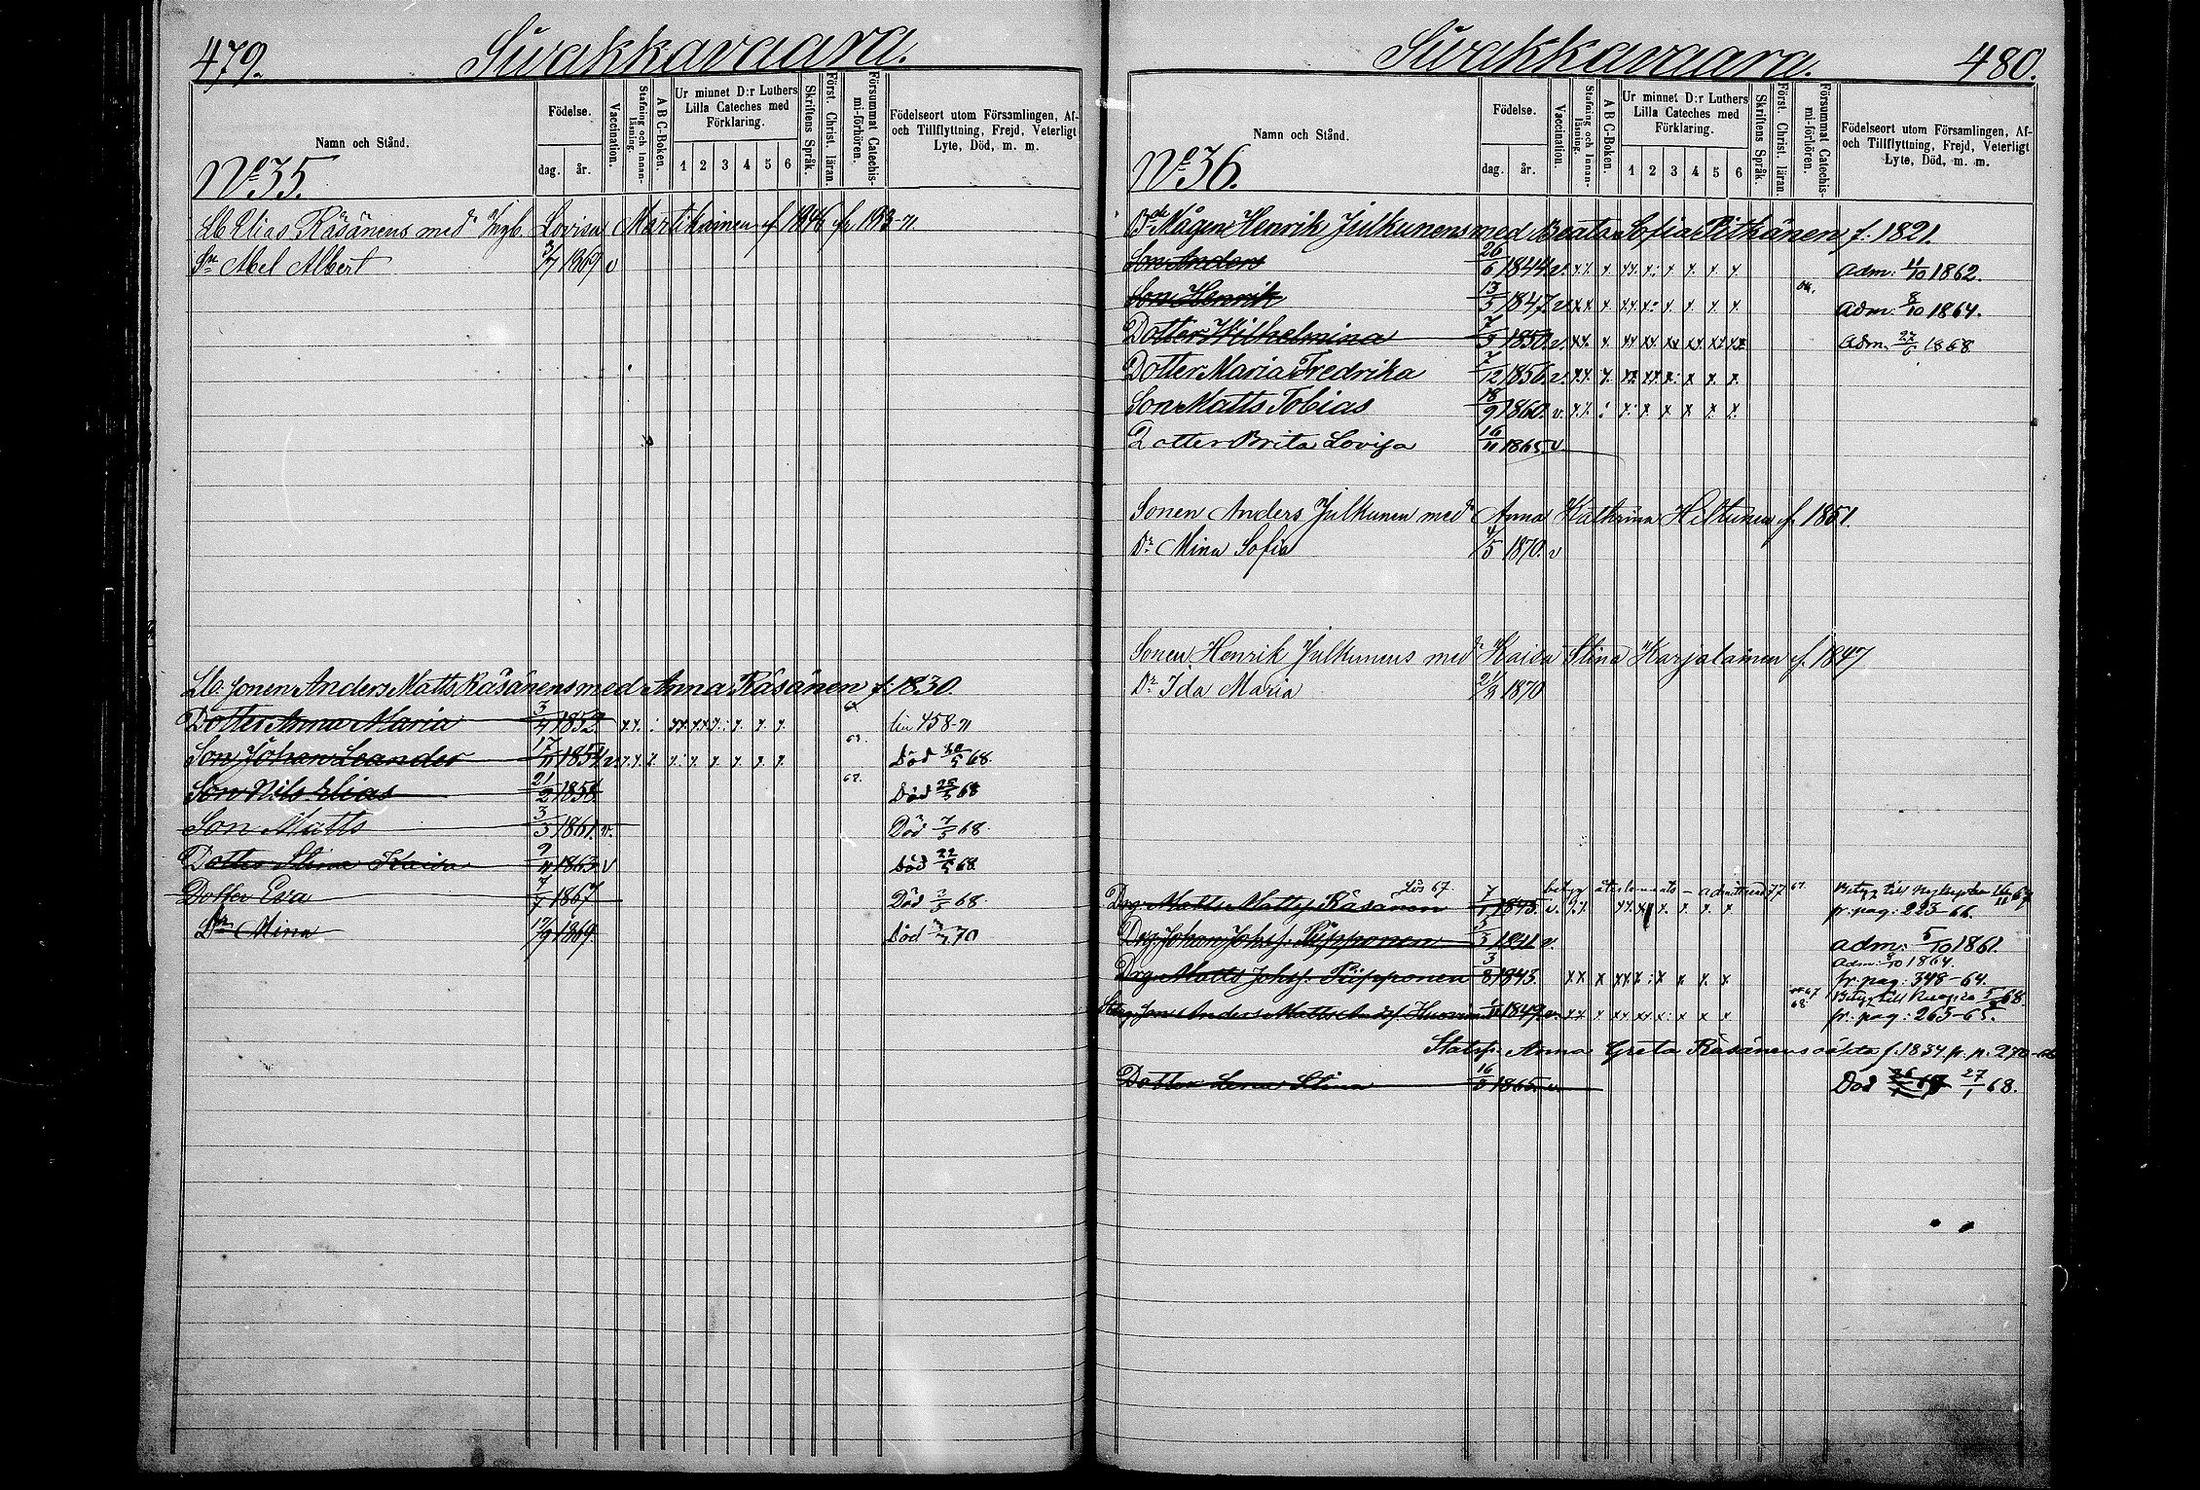 479. Sivakkavaara.
Namn och Stånd.
Födelse.
dag. år.
Vaccination.
Stafning och Innanläsning.
A B C-Boken.
Ur minnet D:r Luthers Lilla Cateches med Förklaring.
1 2 3 4 5 6
Skriftens Språk.
Först. Christ. läran.
Försummat Catechismi-förhören.
Födelseort utom Församlingen, Af- och Tillflyttning, Frejd, Veterligt Lyte, Död, m. m.
No 35.
Elias Räsänens med Lovisa Martikainen f. 1846
Sn Abel Albert 1869 v
Sonen Anders Matts. Räsänens med Anna Räsänen f. 1830.
Dotter Anna Maria 3/4 1852 458-71
Son Johan Leander 17/11 1854 v Död 20/5 68.
Son Nils Elias 21/2 1858 Död 25/5 68
Son Matts 3/3 1861. v. Död 7/5 68.
Dotter Stina Kaisa 9/11 1863 v Död 22/5 68
Dotter Eva 1867 Död 68.
Dr Mina 1869 Död 70
Sivakkavaara. 480.
Namn och Stånd.
Födelse.
dag. år.
Vaccination.
Stafning och Innanläsning.
A B C-Boken.
Ur minnet D:r Luthers Lilla Cateches med Förklaring.
1 2 3 4 5 6
Skriftens Språk.
Först. Christ. läran.
Försummat Catechismi-förhören.
Födelseort utom Församlingen, Af- och Tillflyttning, Frejd, Veterligt Lyte, Död, m. m.
No 36.
Mågen Henrik Julkunens med Beata Sofia Pitkänen f. 1821.
Son Anders 26/6 1844. v. adm: 11/10 1862.
Son Henrik 13/5 1847. v. adm: 8/10 1864.
Dotter Wilhelmina 7/3 1850. v. adm. 27/6 1868
Dotter Maria Fredrika 7/12 1856. v.
Son Matts Tobias 18/9 1860. v.
Dotter Brita Lovisa 16/11 1865. v
Sonen Anders Julkunen med Anna Kathrina Hiltunen f. 1851.
Dr Mina Sofia 1870. v
Sonen Henrik Julkunens med Kaisa Stina Karjalainen f. 1847
Dr Ida Maria 1870
Drg Matts Matts. Räsänen 1845. v. fr. pag: 223-66.
Drg. Johan Johsf. Piipponen 5/3 1841 v. adm: 5/10 1861.
Drg. Matts Johsf. Piipponen 3/8 1843. adm: 8/10 1864. fr. pag: 348-64.
Anders Matts 1847. v. fr. pag: 265-65.
Anna Greta Räsänens oäkta f. 1834 fr. p. 270-66
Dotter Lena Stina 1865. v Död 27/1 68.